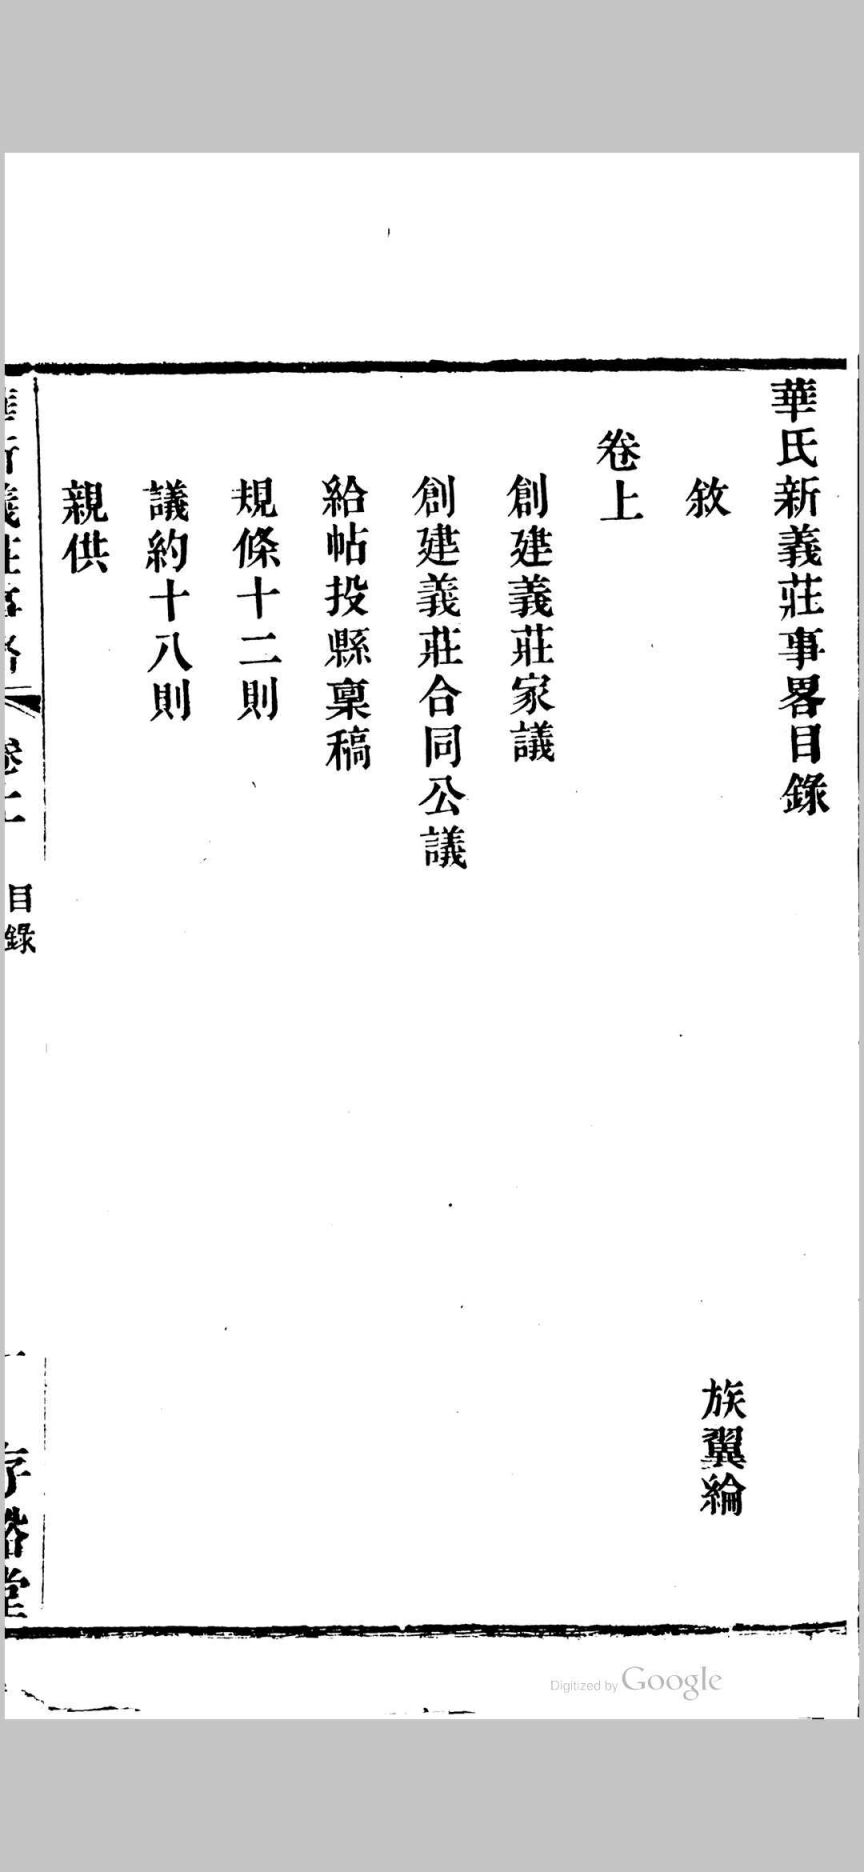 華氏新義莊事畧目錄
敘　族翼綸
卷上
創建義莊家議
創建義莊合同公議
給帖投縣稟稿
規條十二則
議約十八則
親供
目錄
Digitized by Google